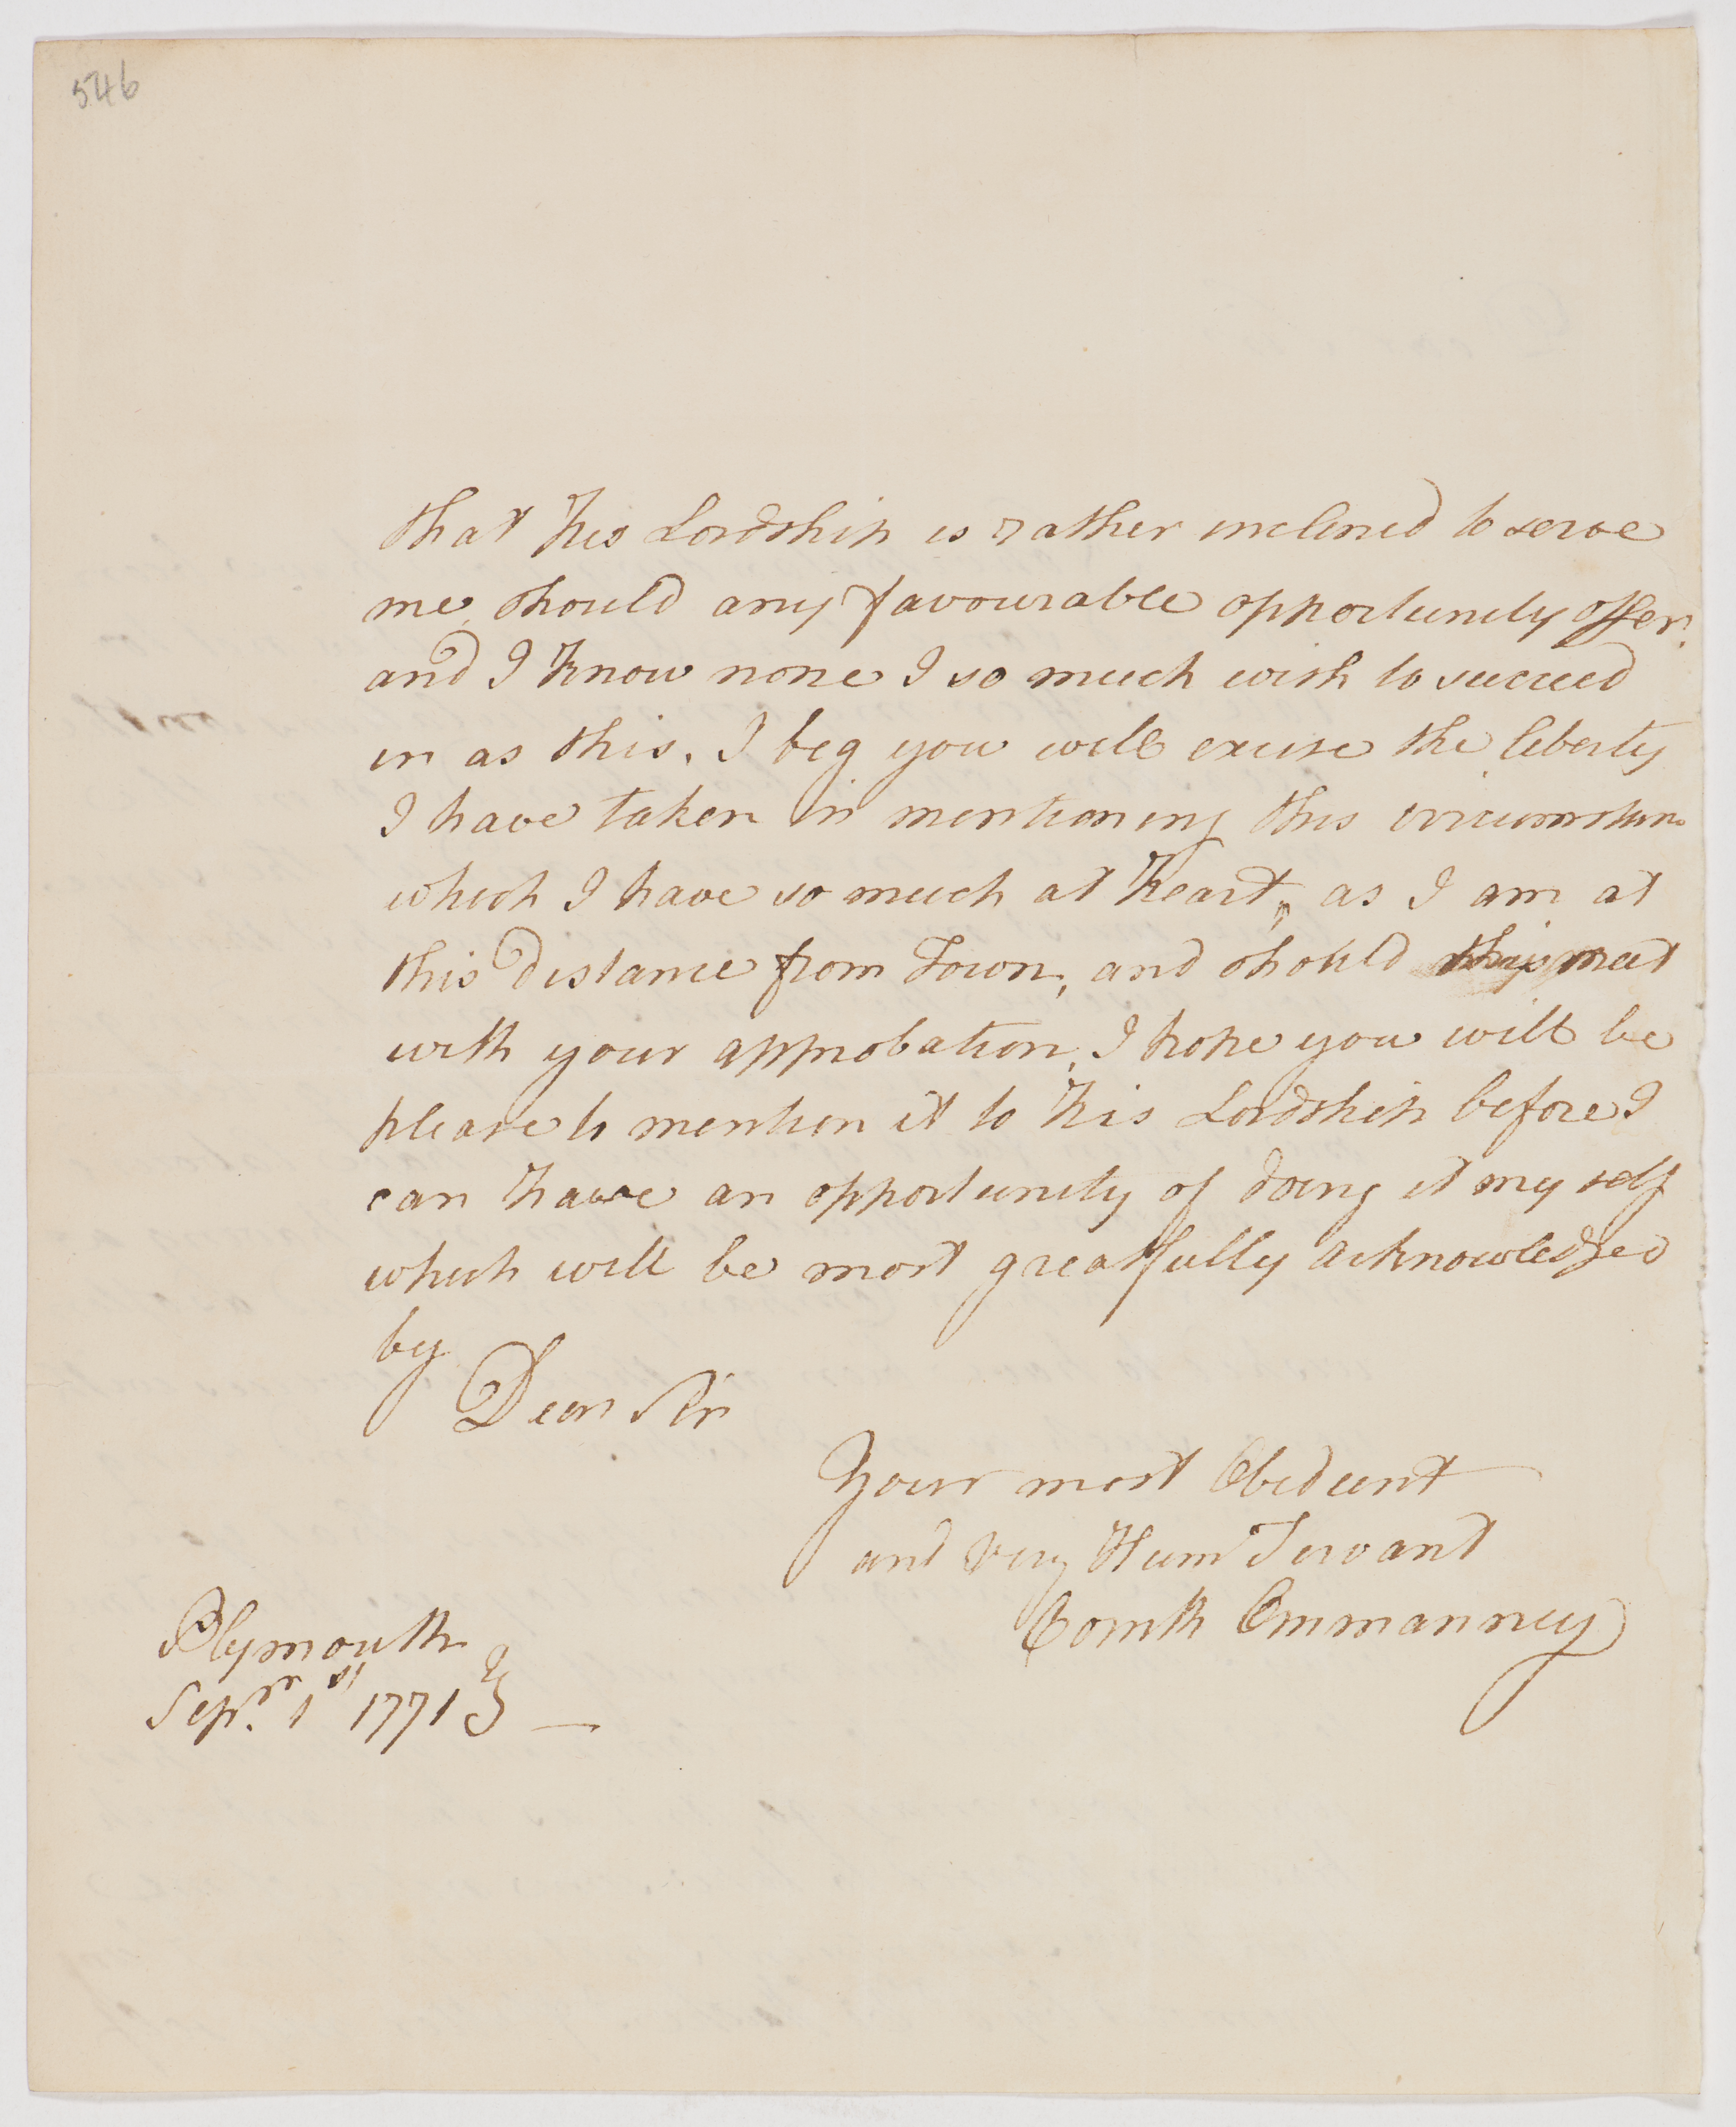 546
that his Lordship is rather inclined to serve
me, should any favourable opportunity offer.
and I know none I so much wish to succeed
in as this. I beg you will excuse the liberty
I have taken in mentioning this circumstan
which I have so much at heart, as I am at
this distance from Town, and should this meet
with your approbation, I hope you will be
please to mention it to his Lordship before I
can have an opportunity of doing it my self
which will be most greatfully acknowledged
by
Dear Sir
Your most Obedient
and very Hum Servant
Emmanney
Plymouth
Sepr. 1st 1771